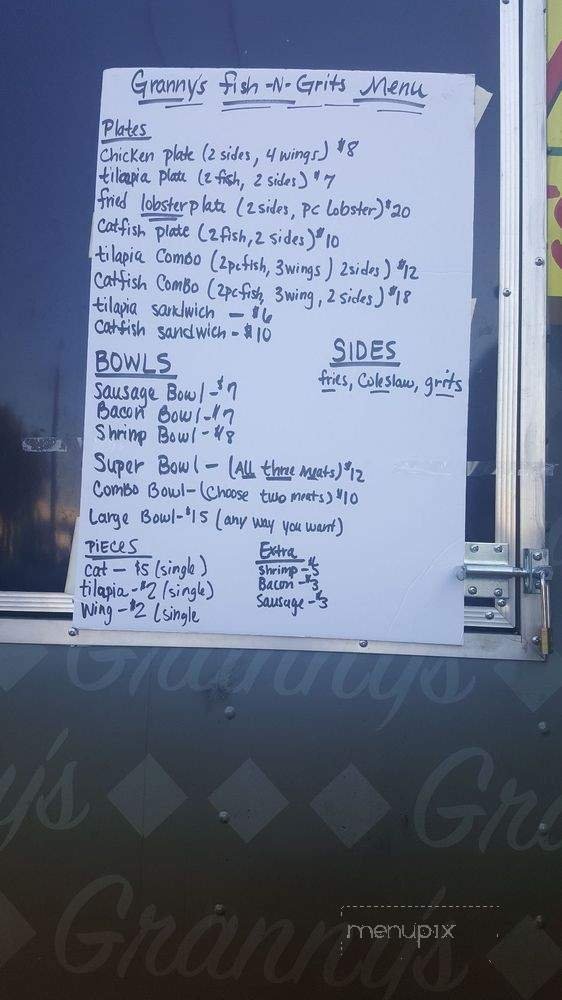 Granny's fish-N-Grits Menu
Plates
Chicken plate (2 sides, 4 wings) $8
tilapia plate (2 fish, 2 sides) $7
fried lobster plate (2 sides, pc lobster) $20
Catfish plate (2 fish, 2 sides) $10
tilapia Combo (2pc fish, 3 wings) 2 sides) $12
Catfish Combo (2pc fish, 3 wing, 2 sides) $18
tilapia sandwich - $6
Catfish sandwich - $10
BOWLS
Sausage Bowl - $7
Bacon Bowl - $7
Shrimp Bowl - $8
Super Bowl - (All three meats) $12
Combo Bowl - (Choose two meats) $10
Large Bowl - $15 (any way you want)
SIDES
fries, Coleslaw, grits
PIECES
cat - $5 (single)
tilapia - $2 (single)
Wing - $2 (single
Extra
Shrimp - $5
Bacon - $3
Sausage - $3
Granny's
y's Gra
Granny's
menupix